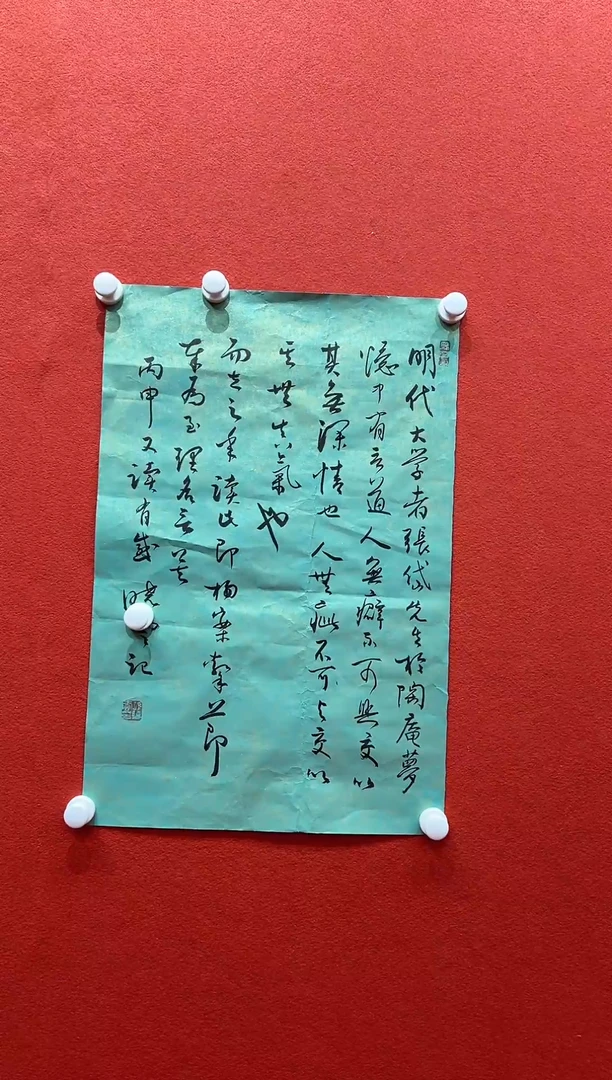 明代大学者張岱先生於陶庵夢
憶中有言道人無癖不可與交以
其無深情也人無疵不可与交以
其無真氣也
而立之年讀此即拍案 即
奉為至理名言
丙申又讀有感曉 記